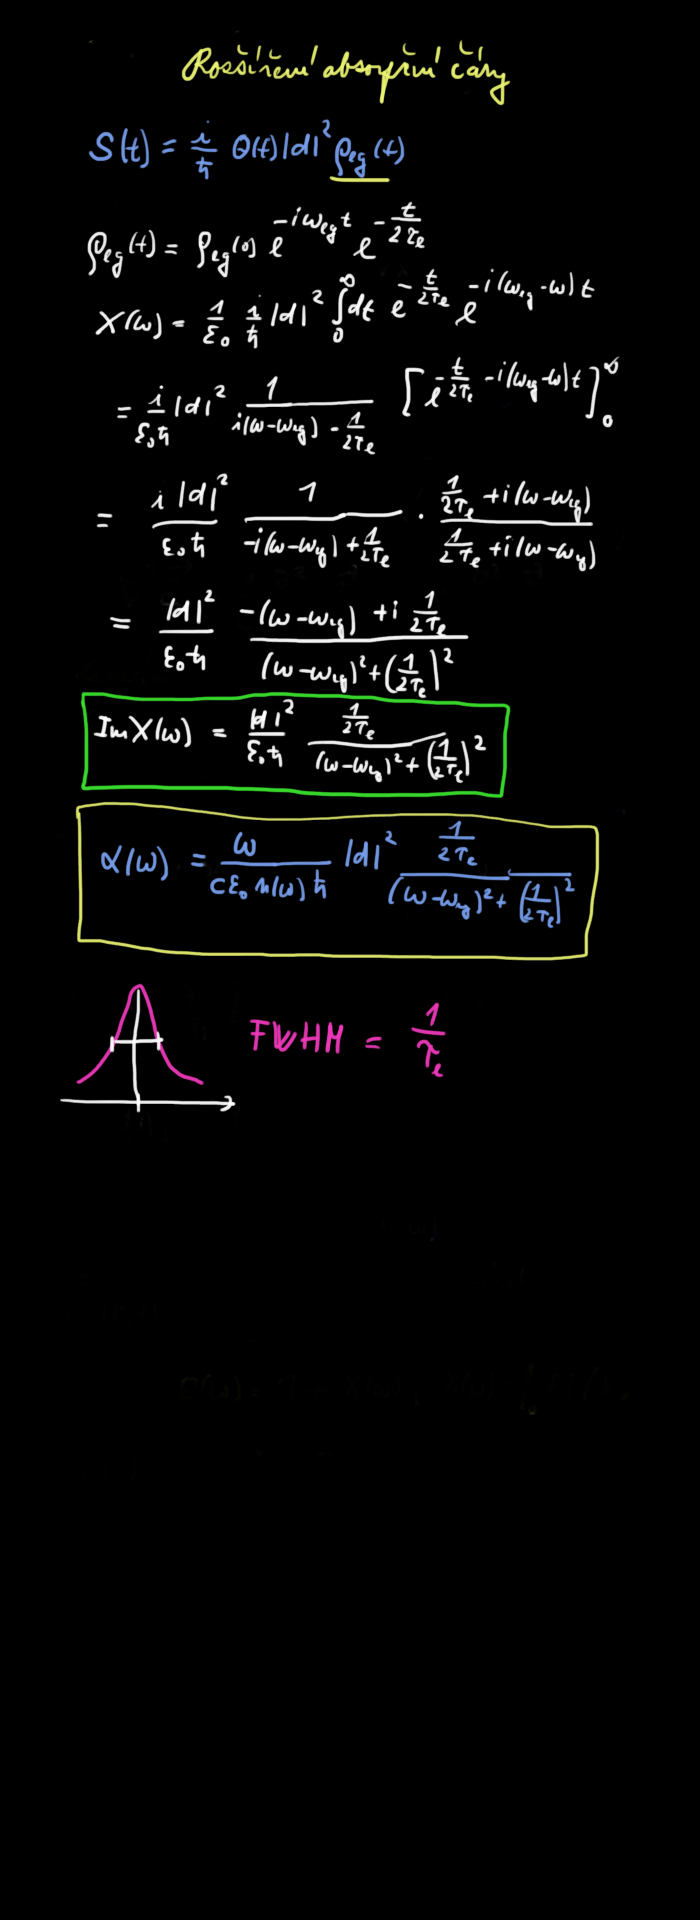 Rozšíření absorpční čáry
S(t) = i/ħ Θ(t) |d|² ρ_eg(t)
ρ_eg(t) = ρ_eg(0) e^{-iω_eg t} e^{-t/2τ_e}
χ(ω) = 1/ε₀ i/ħ |d|² ∫₀^∞ dt e^{-t/2τ_e} e^{-i(ω_eg-ω)t}
= i/ε₀ħ |d|² 1/(i(ω-ω_eg) - 1/2τ_e) [e^{-t/2τ_e - i(ω_eg-ω)t}]₀^∞
= i|d|²/ε₀ħ 1/(-i(ω-ω_eg) + 1/2τ_e) · (1/2τ_e + i(ω-ω_eg))/(1/2τ_e + i(ω-ω_eg))
= |d|²/ε₀ħ (-(ω-ω_eg) + i 1/2τ_e)/((ω-ω_eg)² + (1/2τ_e)²)
Im χ(ω) = |d|²/ε₀ħ (1/2τ_e)/((ω-ω_eg)² + (1/2τ_e)²)
α(ω) = ω/(cε₀n(ω)ħ) |d|² (1/2τ_e)/((ω-ω_eg)² + (1/2τ_e)²)
FWHM = 1/τ_e